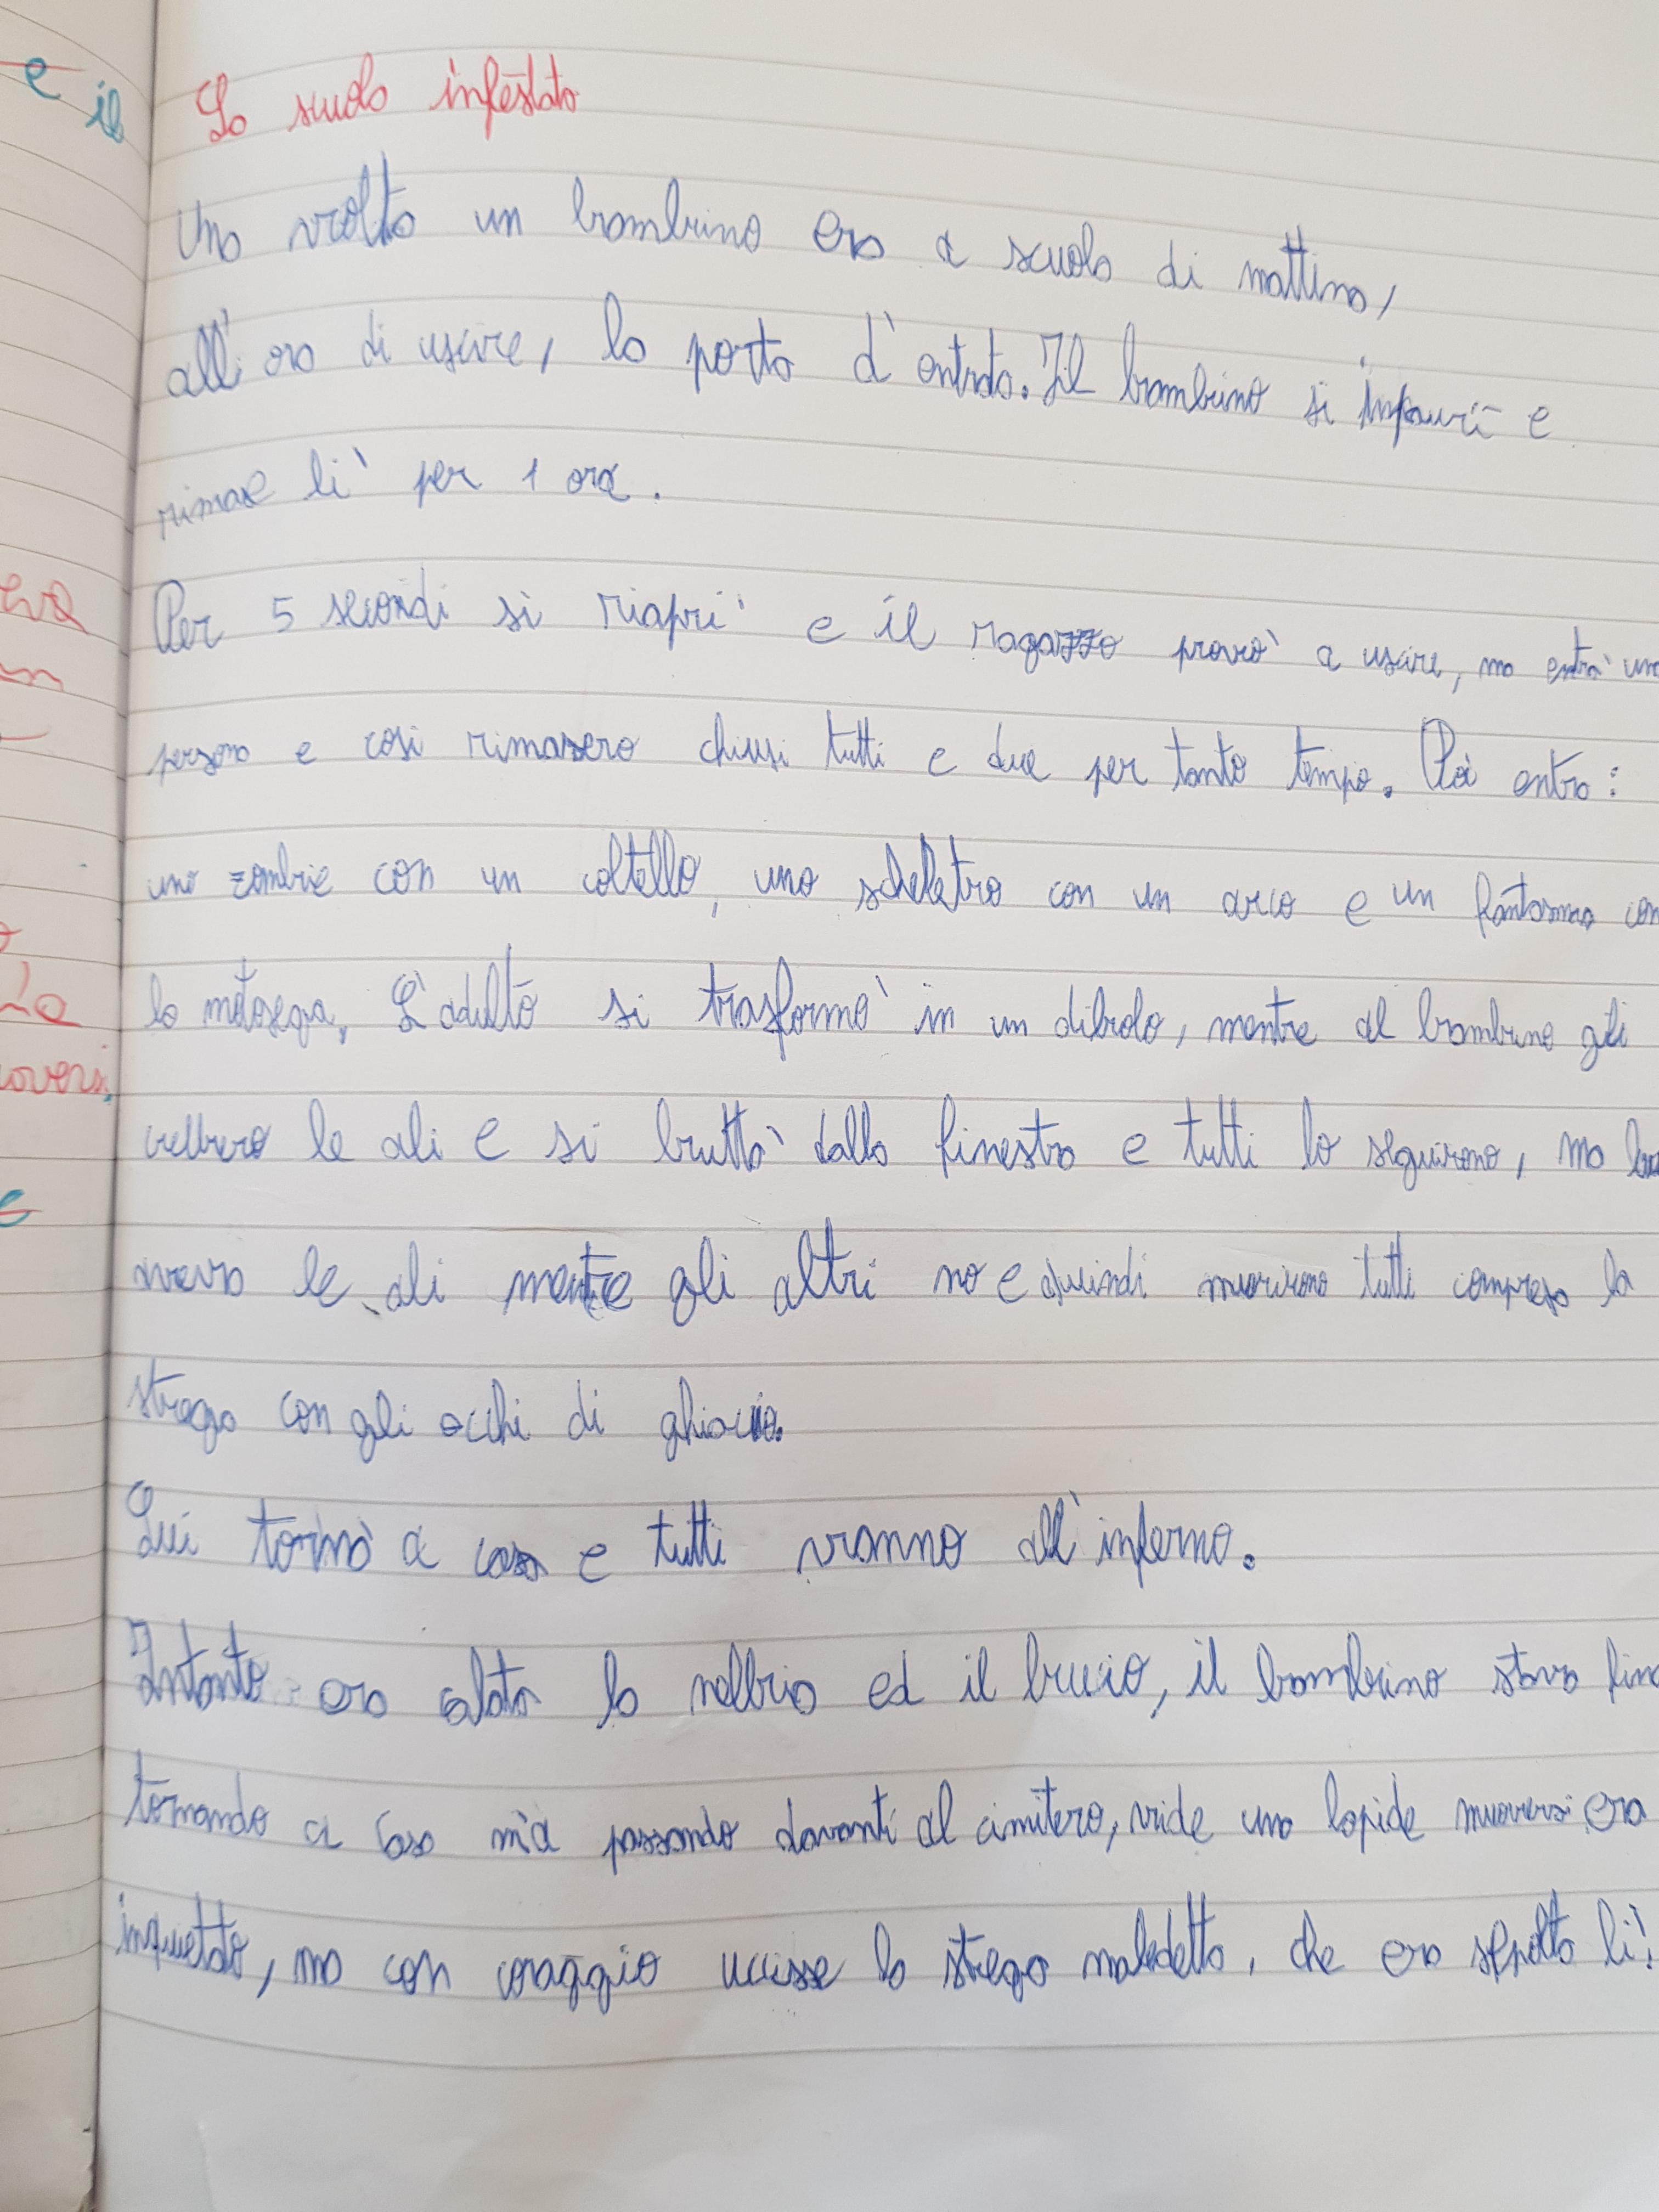 e il
La scuola infestata
Una volta un bambino era a scuola di mattina,
all'ora di uscire, la porta d'entrata. Il bambino si impaurì e
rimase lì per 1 ora.
Per 5 secondi si riaprì e il ragazzo provò a uscire, ma entrò una
persona e così rimasero chiusi tutti e due per tanto tempo. Poi entro:
uno zombie con un coltello, uno scheletro con un arco e un fantasma con
la motosega. L'adulto si trasformò in un diavolo, mentre al bambino gli
vebbero le ali e si buttò dalla finestra e tutti lo seguirono, ma
aveva le ali mentre gli altri no e quindi muorirono tutti compresa la
strega con gli occhi di ghiaccio.
Lui tornò a casa e tutti vranno all'inferno.
Intanto era calata la nebbia ed il buio, il bambino stava
tornando a casa ma passando davanti al cimitero, vide una lapide muoversi era
inquietato, ma con coraggio uccise la strega maledetta, che era sepolta lì!